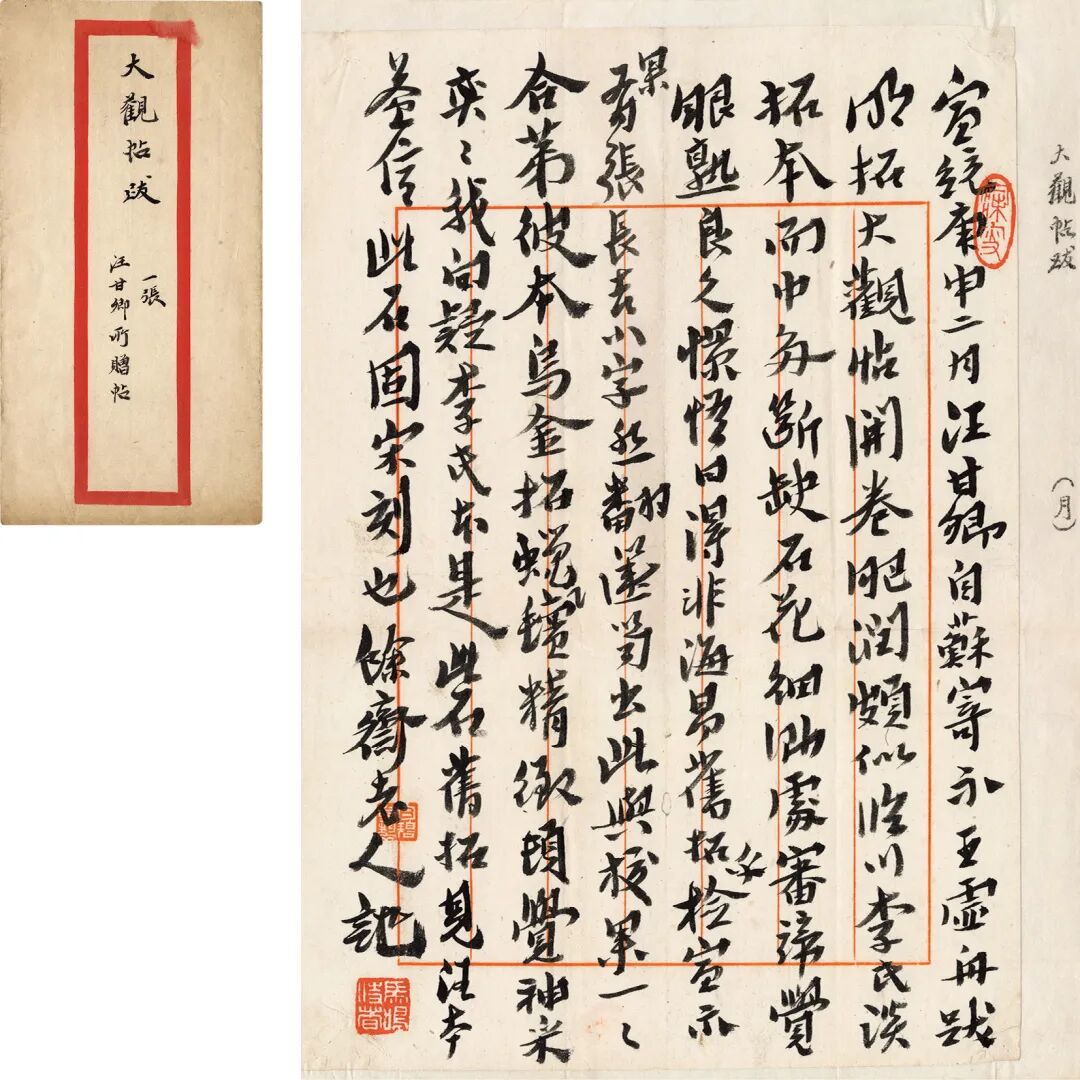 大觀帖跋
一張
汪甘卿所贈帖
大觀帖跋
（月）
宣統庚申二月汪甘卿自蘇寄示王虛舟跋
明拓大觀帖開卷肥潤頗似臨川李氏淡
拓本而中多斷缺石花細泐處審諦覺
眼熟良久憬悟曰得非海昌舊拓乎檢宣示
果有張長吉小字然 笥出此與校果一〻
合第彼本烏金拓 精緻頓覺神采
奕〻我向疑李氏本是此石舊拓見汪本
益信此石固宋刻也 餘齋老人記